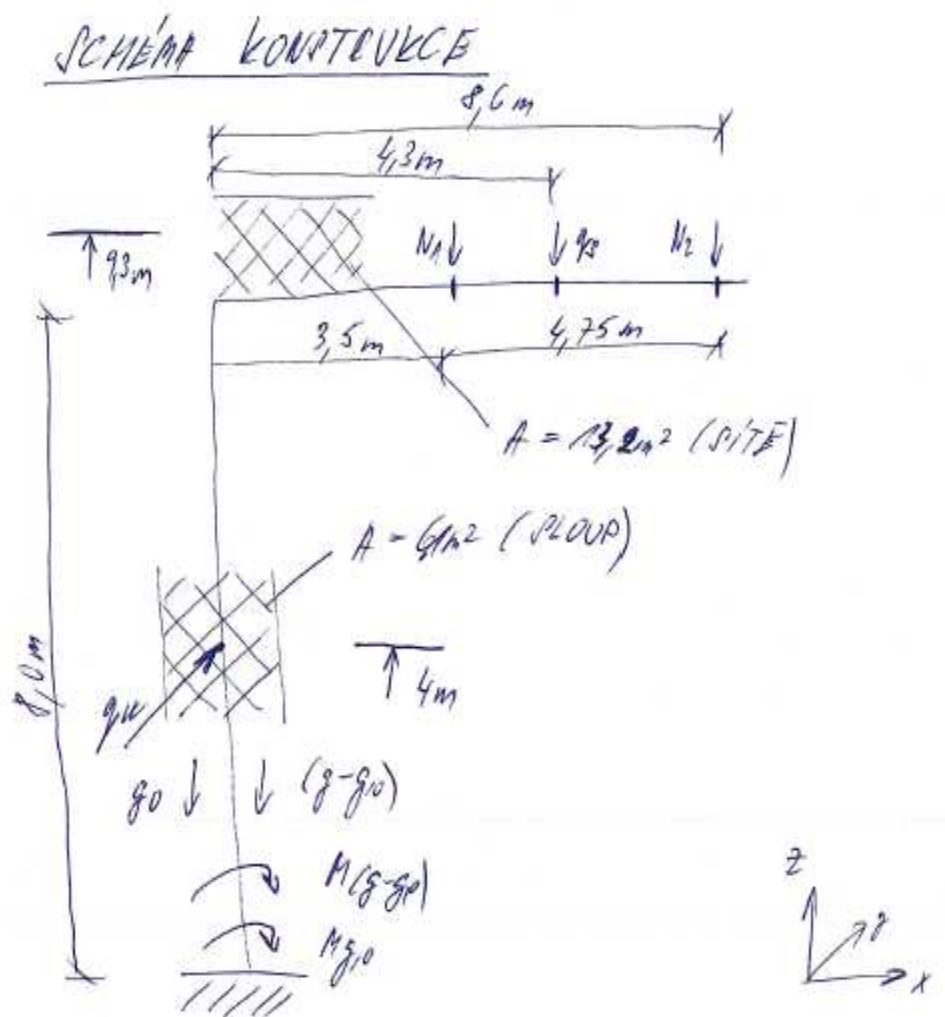 SCHÉMA KONSTRUKCE
8,6 m
4,3 m
N1 qs N2
9,3 m
3,5 m 4,75 m
A = 13,2 m² (SÍTĚ)
A = 6,1 m² (SLOUP)
8,0 m
qw
4 m
g0 (g-g0)
M(g-g0)
Mg,0
z
y
x